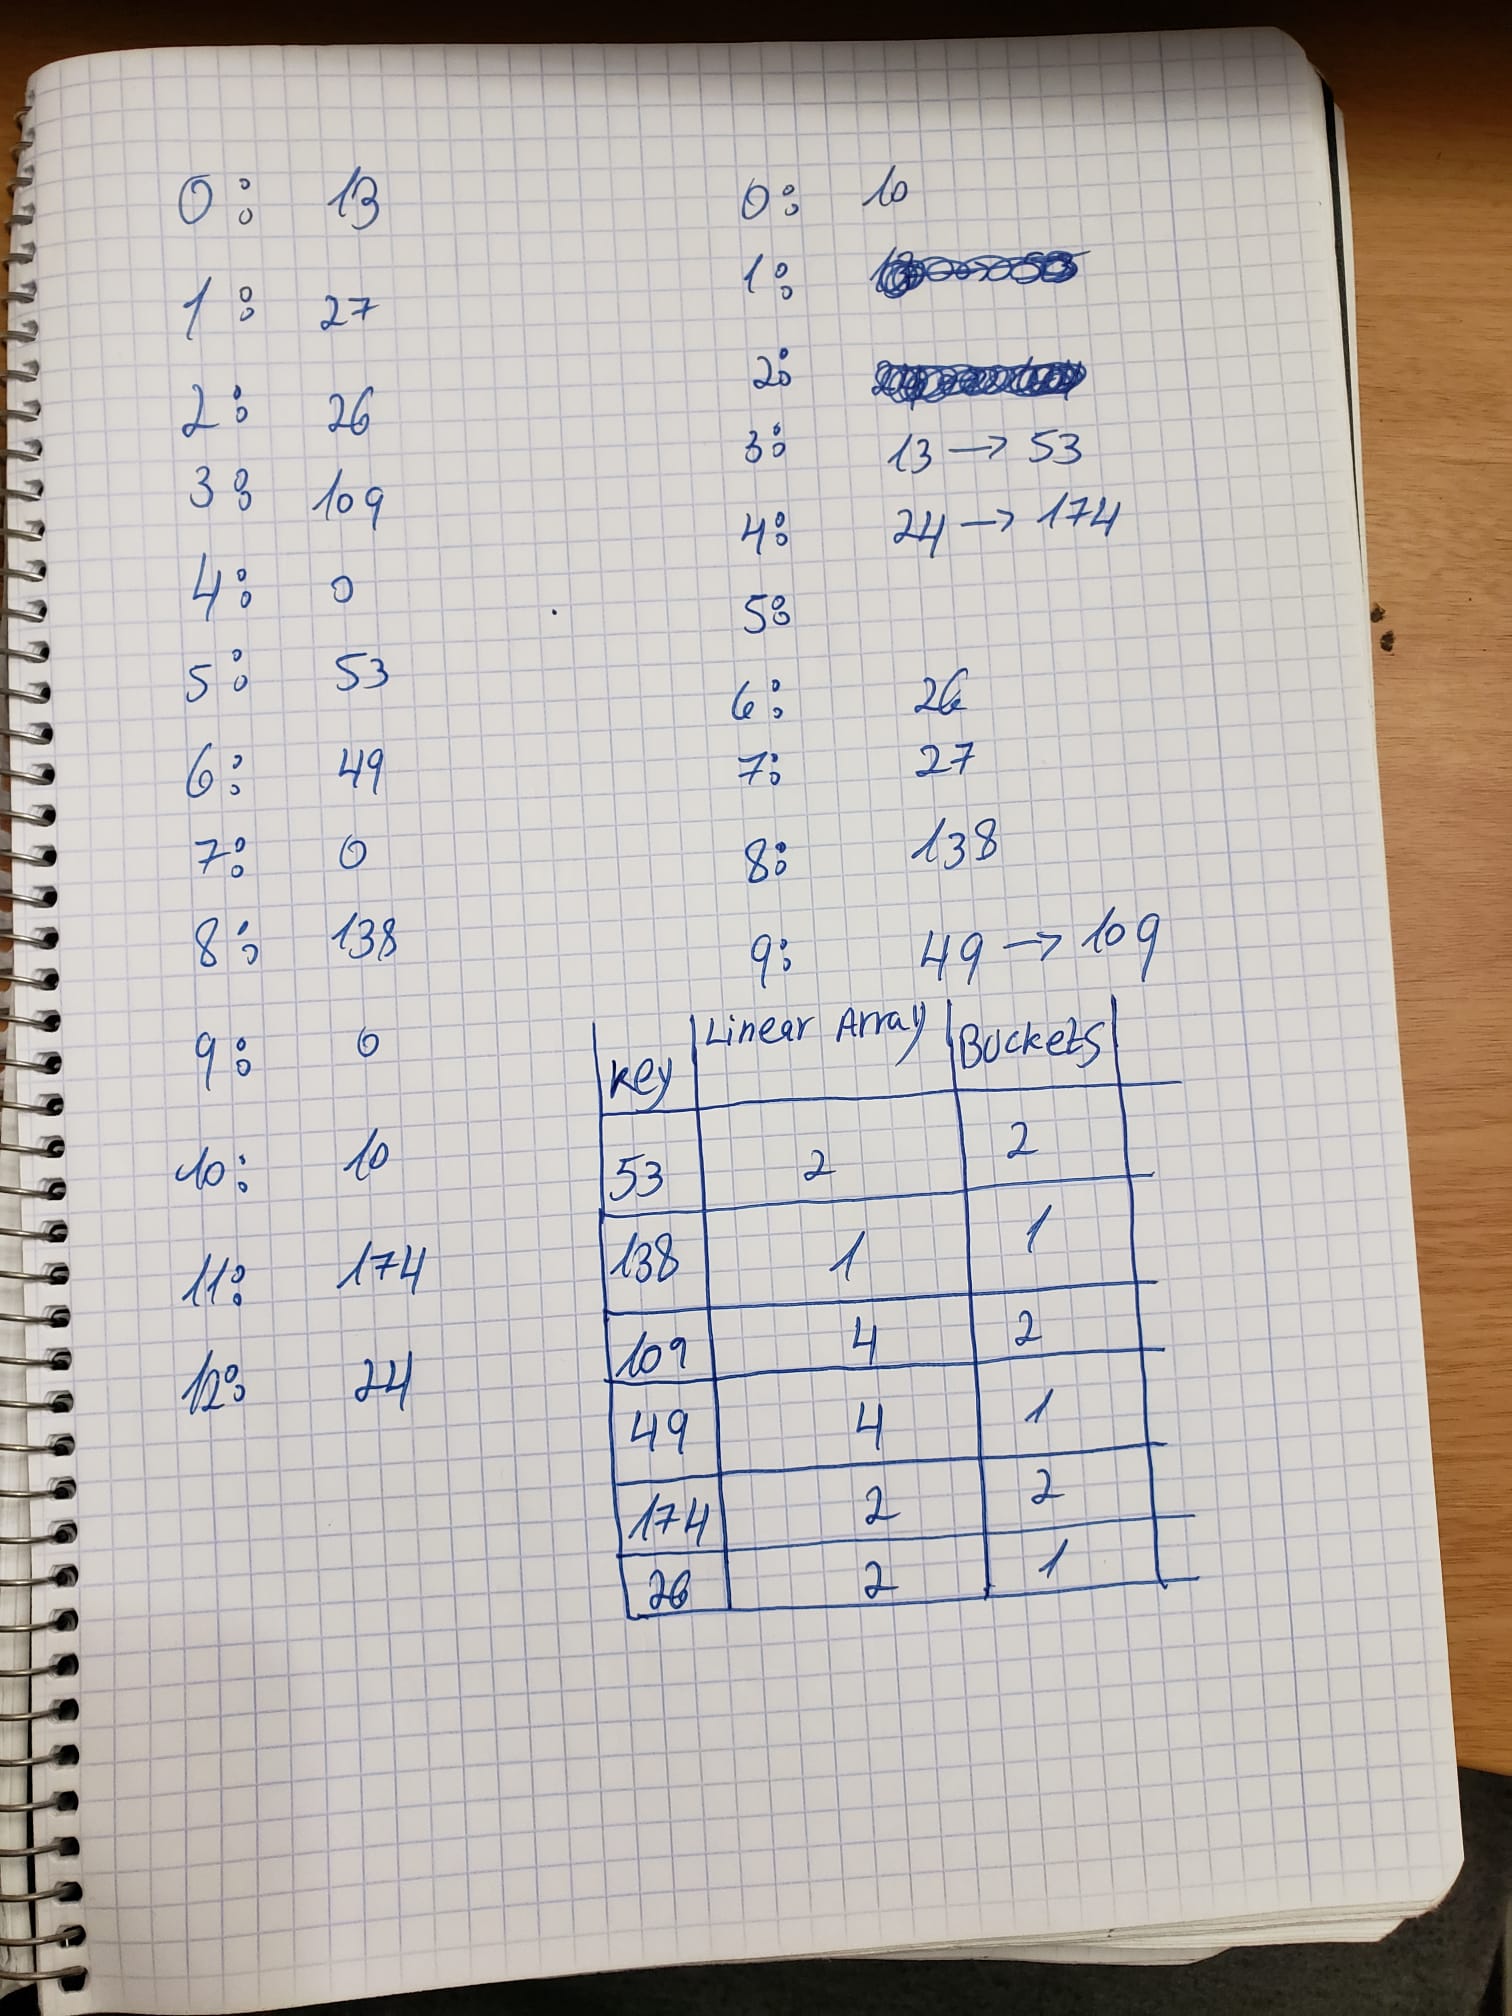 0: 13
1: 27
2: 26
3: 109
4: 0
5: 53
6: 49
7: 0
8: 138
9: 0
10: 10
11: 174
12: 24
0: 10
1:
2:
3: 13 → 53
4: 24 → 174
5:
6: 26
7: 27
8: 138
9: 49 → 109
Key Linear Array Buckets
53 2 2
138 1 1
109 4 2
49 4 1
174 2 2
26 2 1